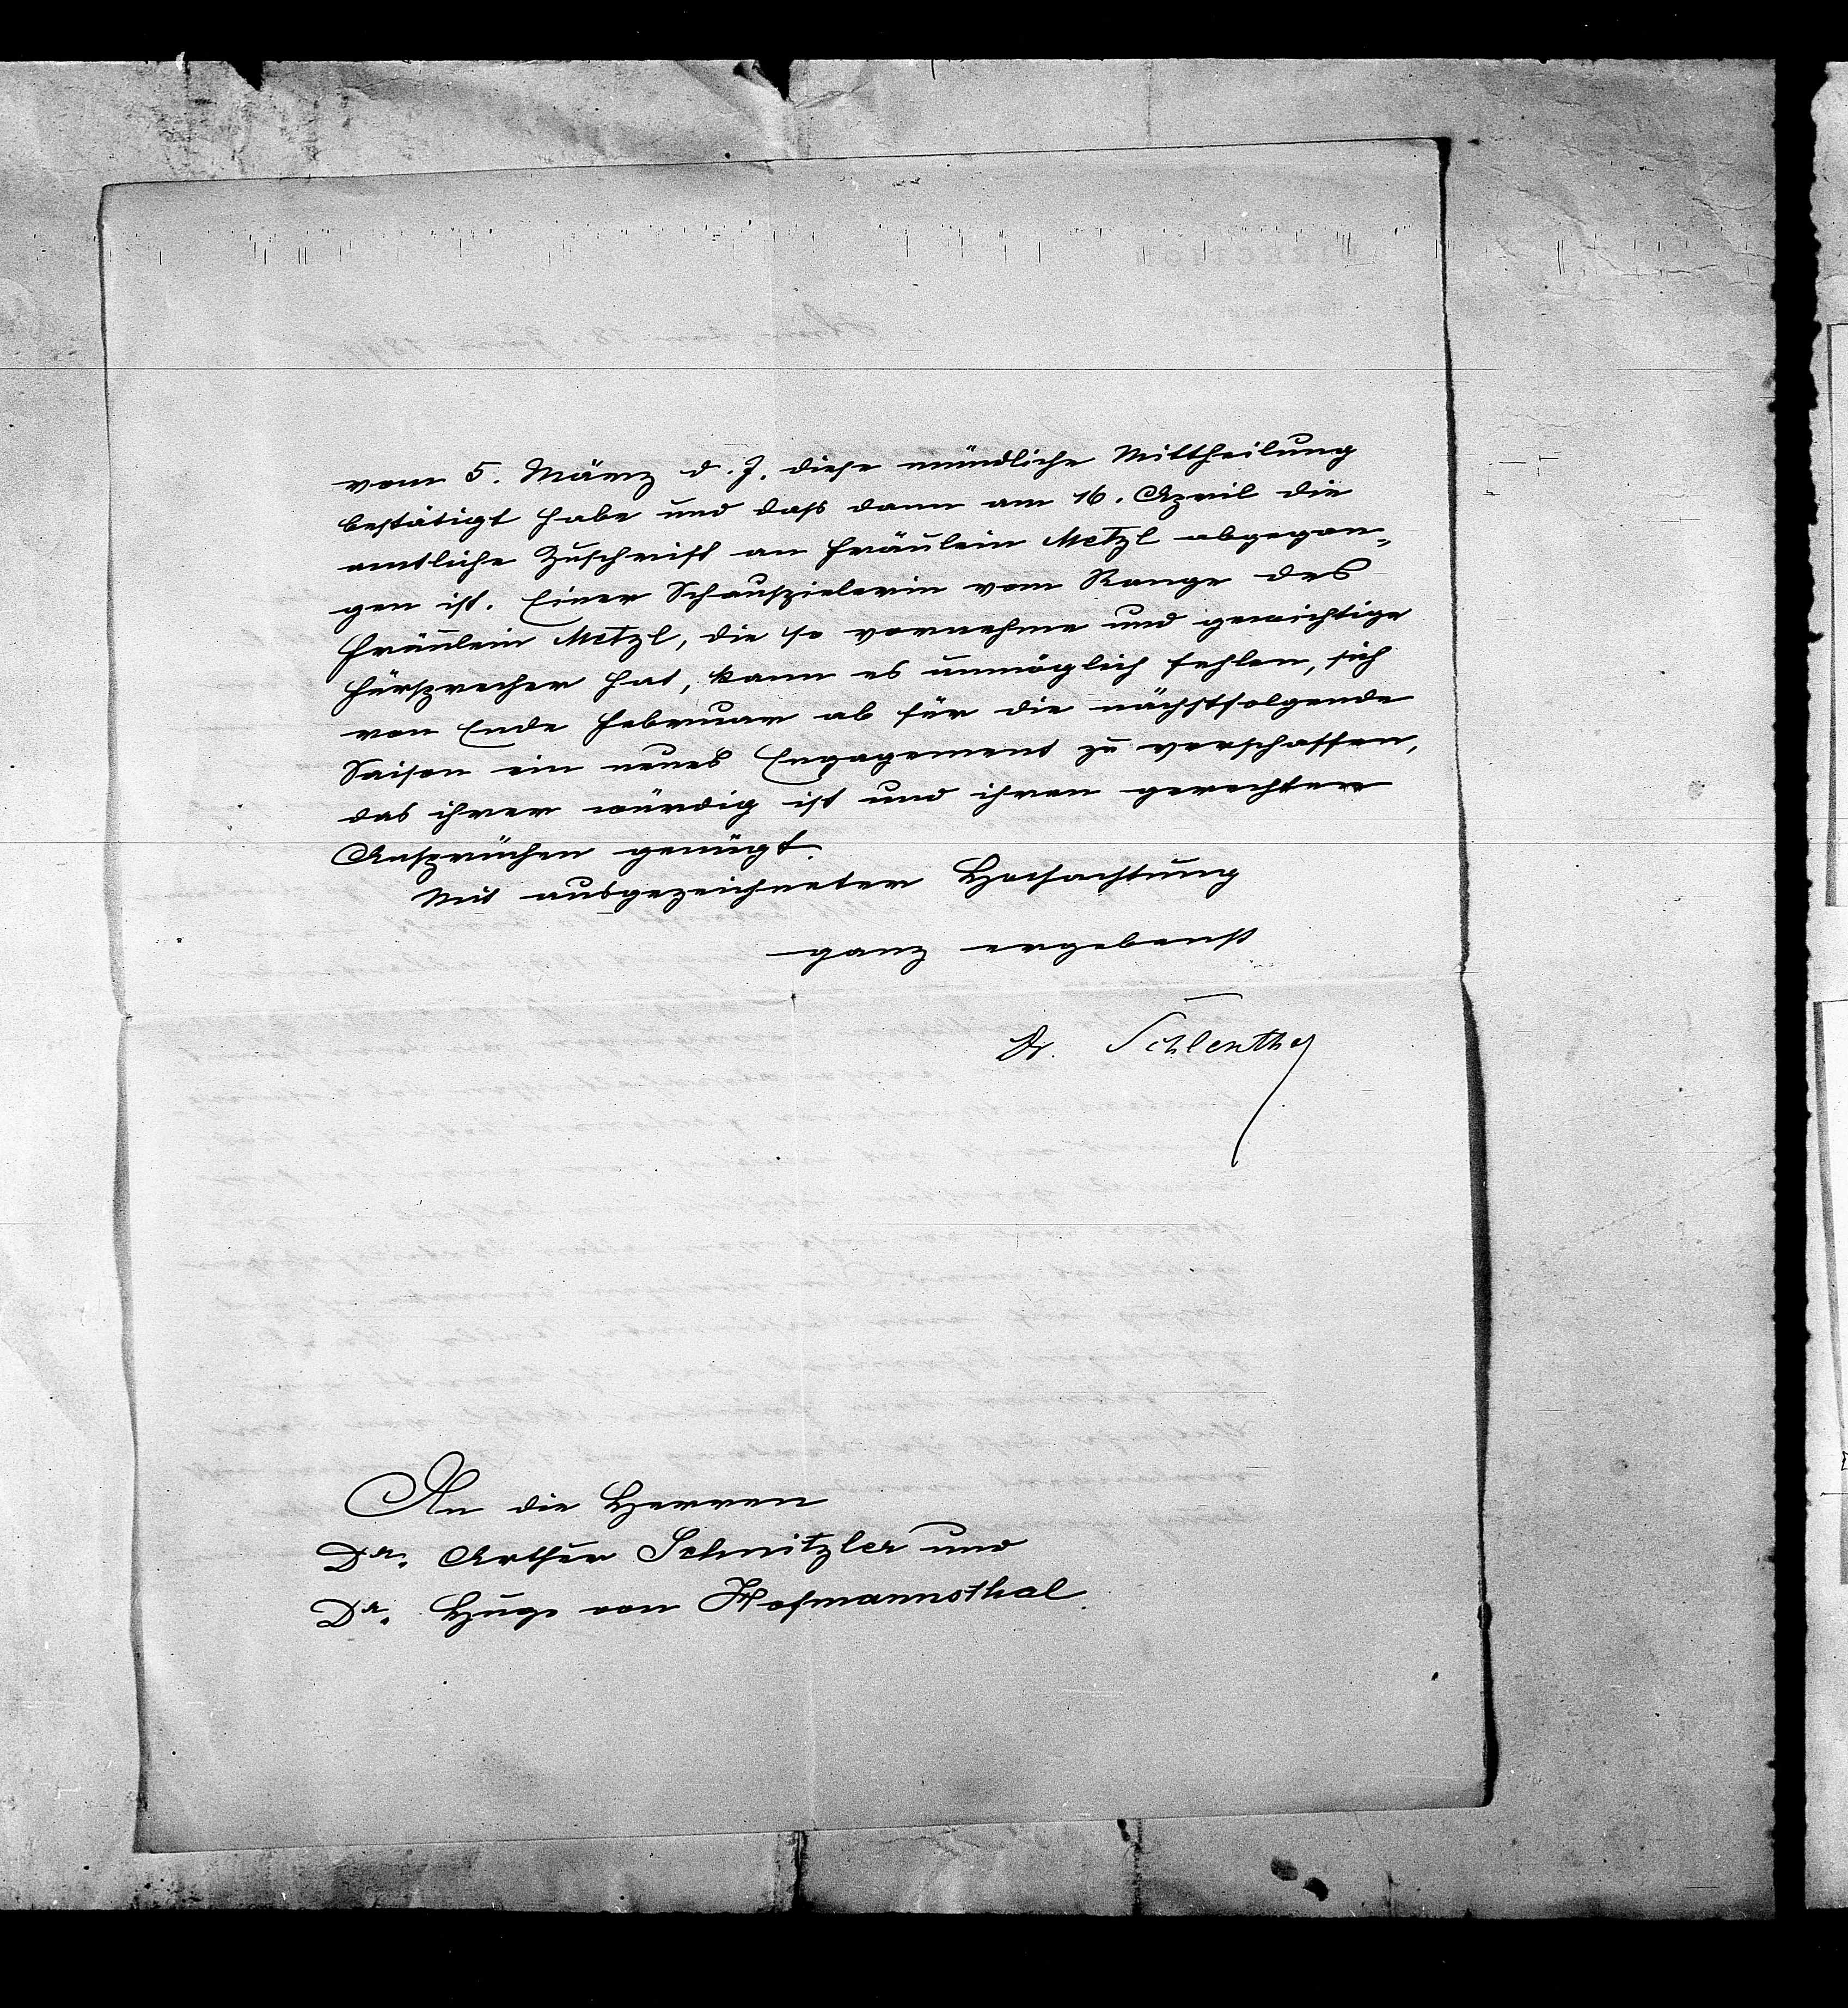 vom 5. März d. J. diese mündliche Mittheilung
bestätigt habe und daß dann am 16. April die
amtliche Zuschrift an Fräulein Metzl abgegan-
gen ist. Einer Schauspielerin vom Range des
Fräulein Metzl, die so vornehme und gewichtige
Fürsprecher hat, kann es unmöglich fehlen, sich
von Ende Februar ab für die nächstfolgende
Saison ein neues Engagement zu verschaffen,
das ihrer würdig ist und ihren gerechten
Ansprüchen genügt.
Mit ausgezeichneter Hochachtung
ganz ergebenst
Dr. Schlenther
An die Herren
Dr. Arthur Schnitzler und
Dr. Hugo von Hofmannsthal.